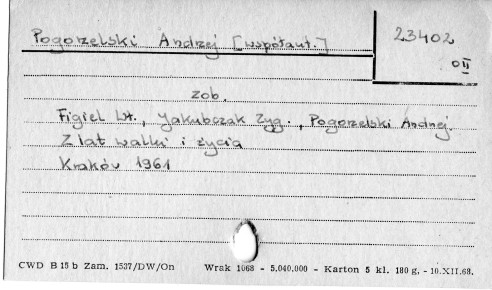 Pogorzelski Andrzej [współaut.]
23402
OII
zob.
Figiel Wł., Jakubczak Zyg., Pogorzelski Andrzej.
Z lat walki i życia
Kraków 1961
CWD B 15 b Zam. 1537/DW/On Wrak 1068 - 5.040.000 - Karton 5 kl. 180 g. - 10.XII.68.